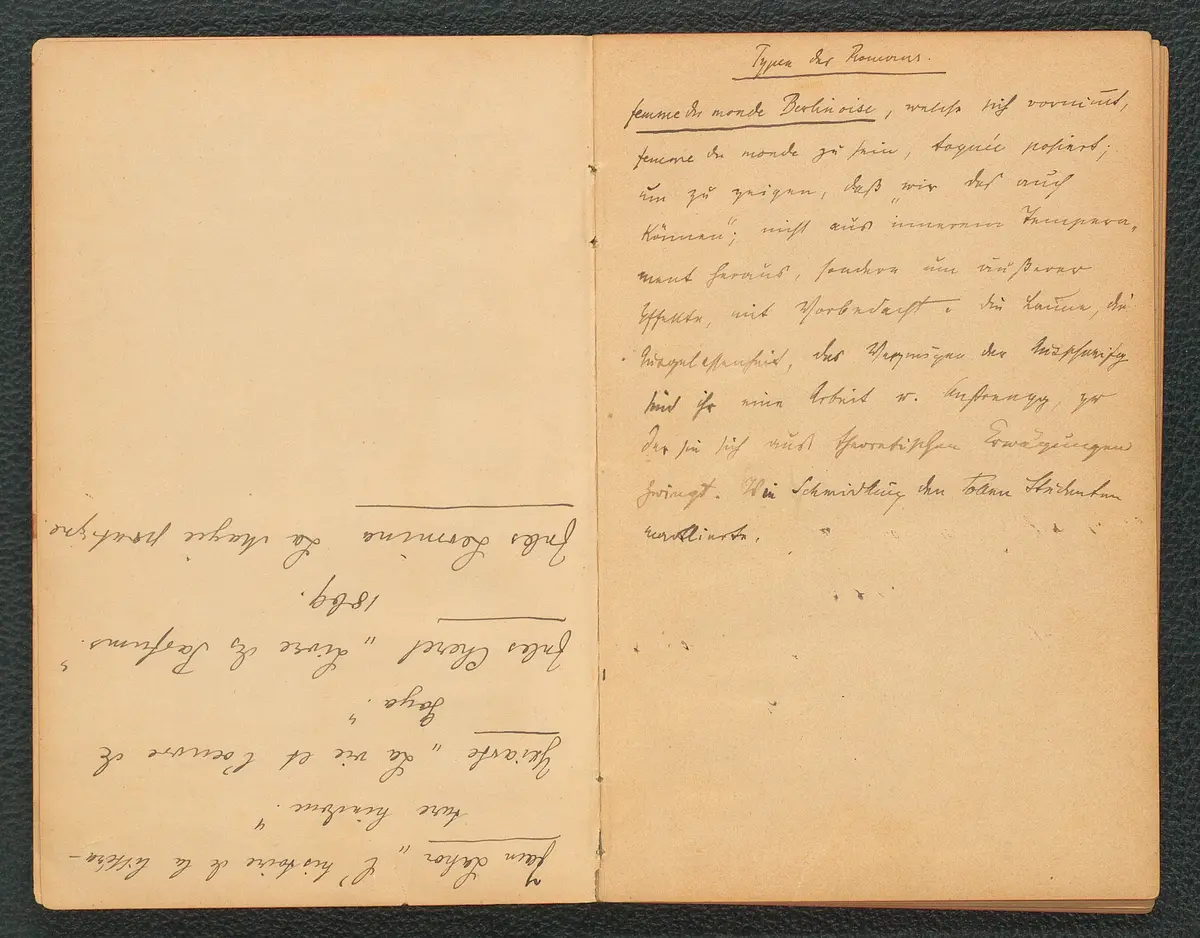 Jean Lahor „L'histoire de la littéra-
ture hindoue."
Yriarte „La vie et l'oeuvre de
Goya."
Jules Cheret „Livre des Parfums."
1869.
Jules Lermina La Magie pratique.
Typen des Romans.
femme du monde Berlinoise, welche sich vornimmt,
femme du monde zu sein, toquée posiert;
um zu zeigen, daß „wir das auch
können"; nicht aus innerem Tempera-
ment heraus, sondern um äußerer
Effekte, mit Vorbedacht. die Laune, die
Ausgelassenheit, das Vergnügen der
sind ihr eine Arbeit u. Anstrengg, zu
der sie sich aus theoretischen Erwägungen
zwingt. Wie Schmidtling den tollen Studenten
markierte.